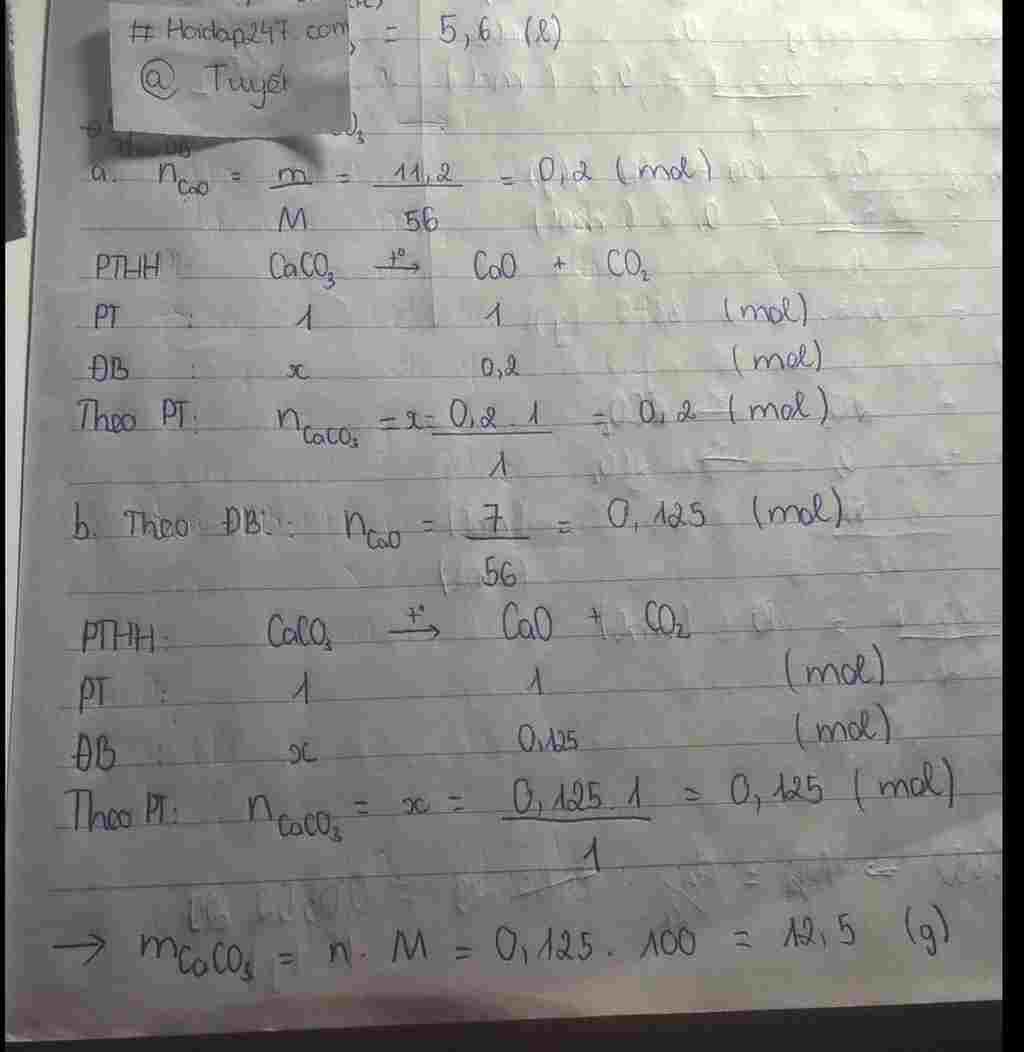 # Hoidap247.com, = 5,6 (l)
@ Tuyết
a. nCaO = m/M = 11,2/56 = 0,2 (mol)
PTHH: CaCO₃ –t°→ CaO + CO₂
PT : 1 1 (mol)
ĐB : x 0,2 (mol)
Theo PT: nCaCO₃ = x = 0,2 . 1/1 = 0,2 (mol)
b. Theo ĐB: nCaO = 7/56 = 0,125 (mol)
PTHH: CaCO₃ –t°→ CaO + CO₂
PT : 1 1 (mol)
ĐB : x 0,125 (mol)
Theo PT: nCaCO₃ = x = 0,125 . 1/1 = 0,125 (mol)
→ mCaCO₃ = n . M = 0,125 . 100 = 12,5 (g)